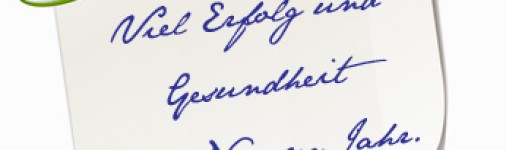 Viel Erfolg und
Gesundheit
Jahr.